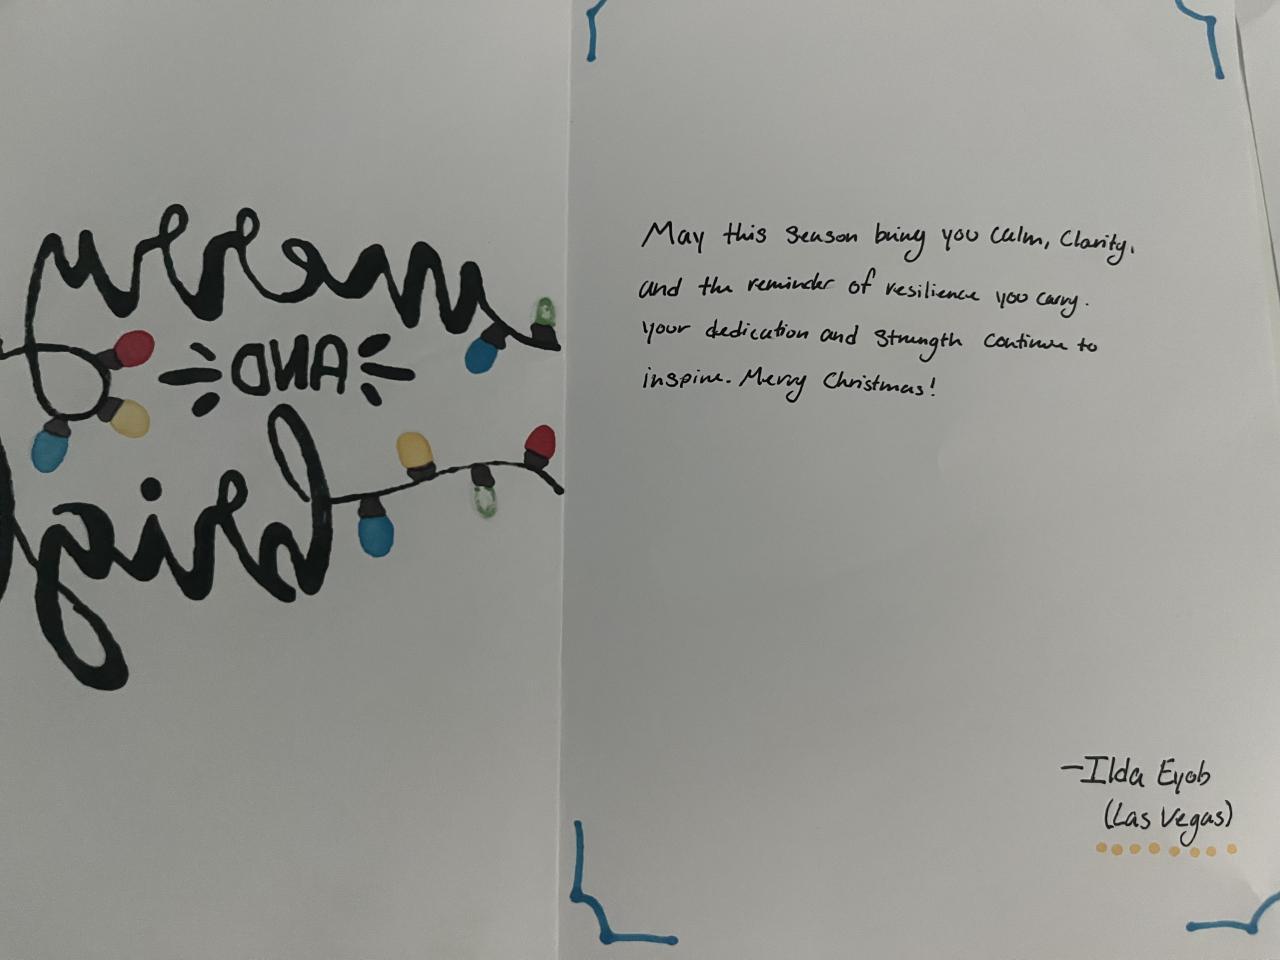 merry
AND
brigh
May this season bring you calm, clarity,
and the reminder of resilience you carry.
Your dedication and strength continue to
inspire. Merry Christmas!
-Ilda Eyob
(Las Vegas)